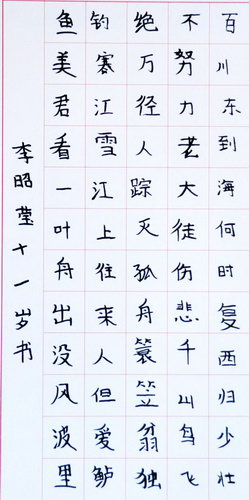 百川东到海何时复西归少壮
不努力老大徒伤悲千山鸟飞
绝万径人踪灭孤舟蓑笠翁独
钓寒江雪江上往来人但爱鲈
鱼美君看一叶舟出没风波里
李昭莹十一岁书